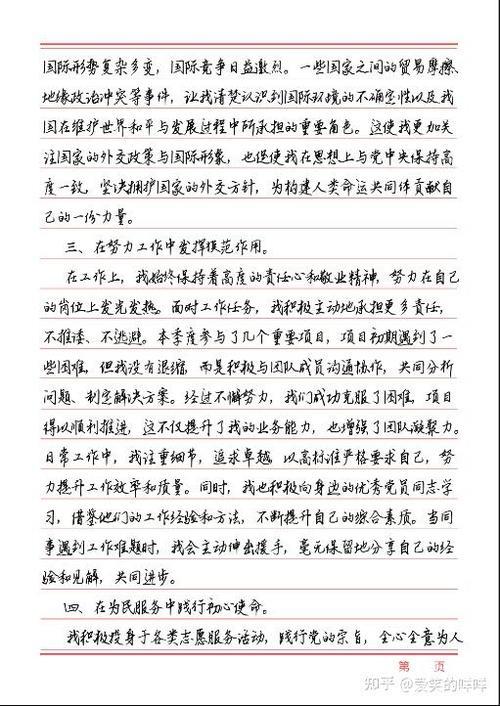 国际形势复杂多变，国际竞争日益激烈。一些国家之间的贸易摩擦、
地缘政治冲突等事件，让我清楚认识到国际环境的不确定性以及我
国在维护世界和平与发展过程中所承担的重要角色。这使我更加关
注国家的外交政策与国际形象，也促使我在思想上与党中央保持高
度一致，坚决拥护国家的外交方针，为构建人类命运共同体贡献自
己的一份力量。
三、在努力工作中发挥模范作用。
在工作上，我始终保持着高度的责任心和敬业精神，努力在自己
的岗位上发光发热。面对工作任务，我积极主动地承担更多责任，
不推诿、不逃避。本季度参与了几个重要项目，项目初期遇到了一
些困难，但我没有退缩，而是积极与团队成员沟通协作，共同分析
问题、制定解决方案。经过不懈努力，我们成功克服了困难，项目
得以顺利推进，这不仅提升了我的业务能力，也增强了团队凝聚力。
日常工作中，我注重细节，追求卓越，以高标准严格要求自己，努
力提升工作效率和质量。同时，我也积极向身边的优秀党员同志学
习，借鉴他们的工作经验和方法，不断提升自己的综合素质。当同
事遇到工作难题时，我会主动伸出援手，毫无保留地分享自己的经
验和见解，共同进步。
四、在为民服务中践行初心使命。
我积极投身于各类志愿服务活动，践行党的宗旨，全心全意为人
第 页
知乎 @爱笑的咩咩